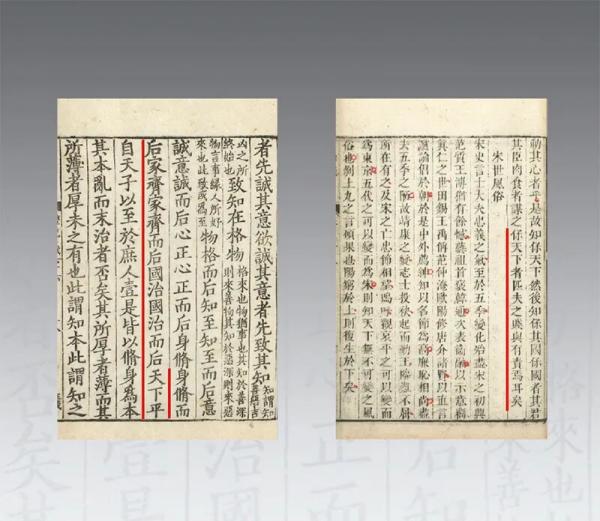 者先誠其意欲誠其意者先致其知知謂知善惡吉
凶之所終始也致知在格物格來也物猶事也其知於善深則來善物其知於惡深則來惡
物言事緣人所好來也此致或為至物格而后知至知至而后意
誠意誠而后心正心正而后身脩身脩而
后家齊家齊而后國治國治而后天下平
自天子以至於庶人壹是皆以脩身為本
其本亂而末治者否矣其所厚者薄而其
所薄者厚未之有也此謂知本此謂知之
前其心者乎是故知保天下然後知保其國保國者其君
其臣肉食者謀之保天下者匹夫之賤與有責焉耳矣
宋世風俗
宋史言士大夫忠義之氣至於五季變化殆盡宋之初興
范質王溥猶有餘憾藝祖首褒韓通次表衛融以示意嚮
真仁之世田錫王禹偁范仲淹歐陽修唐介諸賢以直言
讜論倡於朝於是中外薦紳知以名節為高廉恥相尚盡
去五季之陋故靖康之變志士投袂起而勤王臨難不屈
所在有之及宋之亡忠節相望嗚呼觀哀平之可以變而
為東京五代之可以變而為宋則知天下無不可變之風
俗也剝上九之言碩果也陽窮於上則復生於下矣